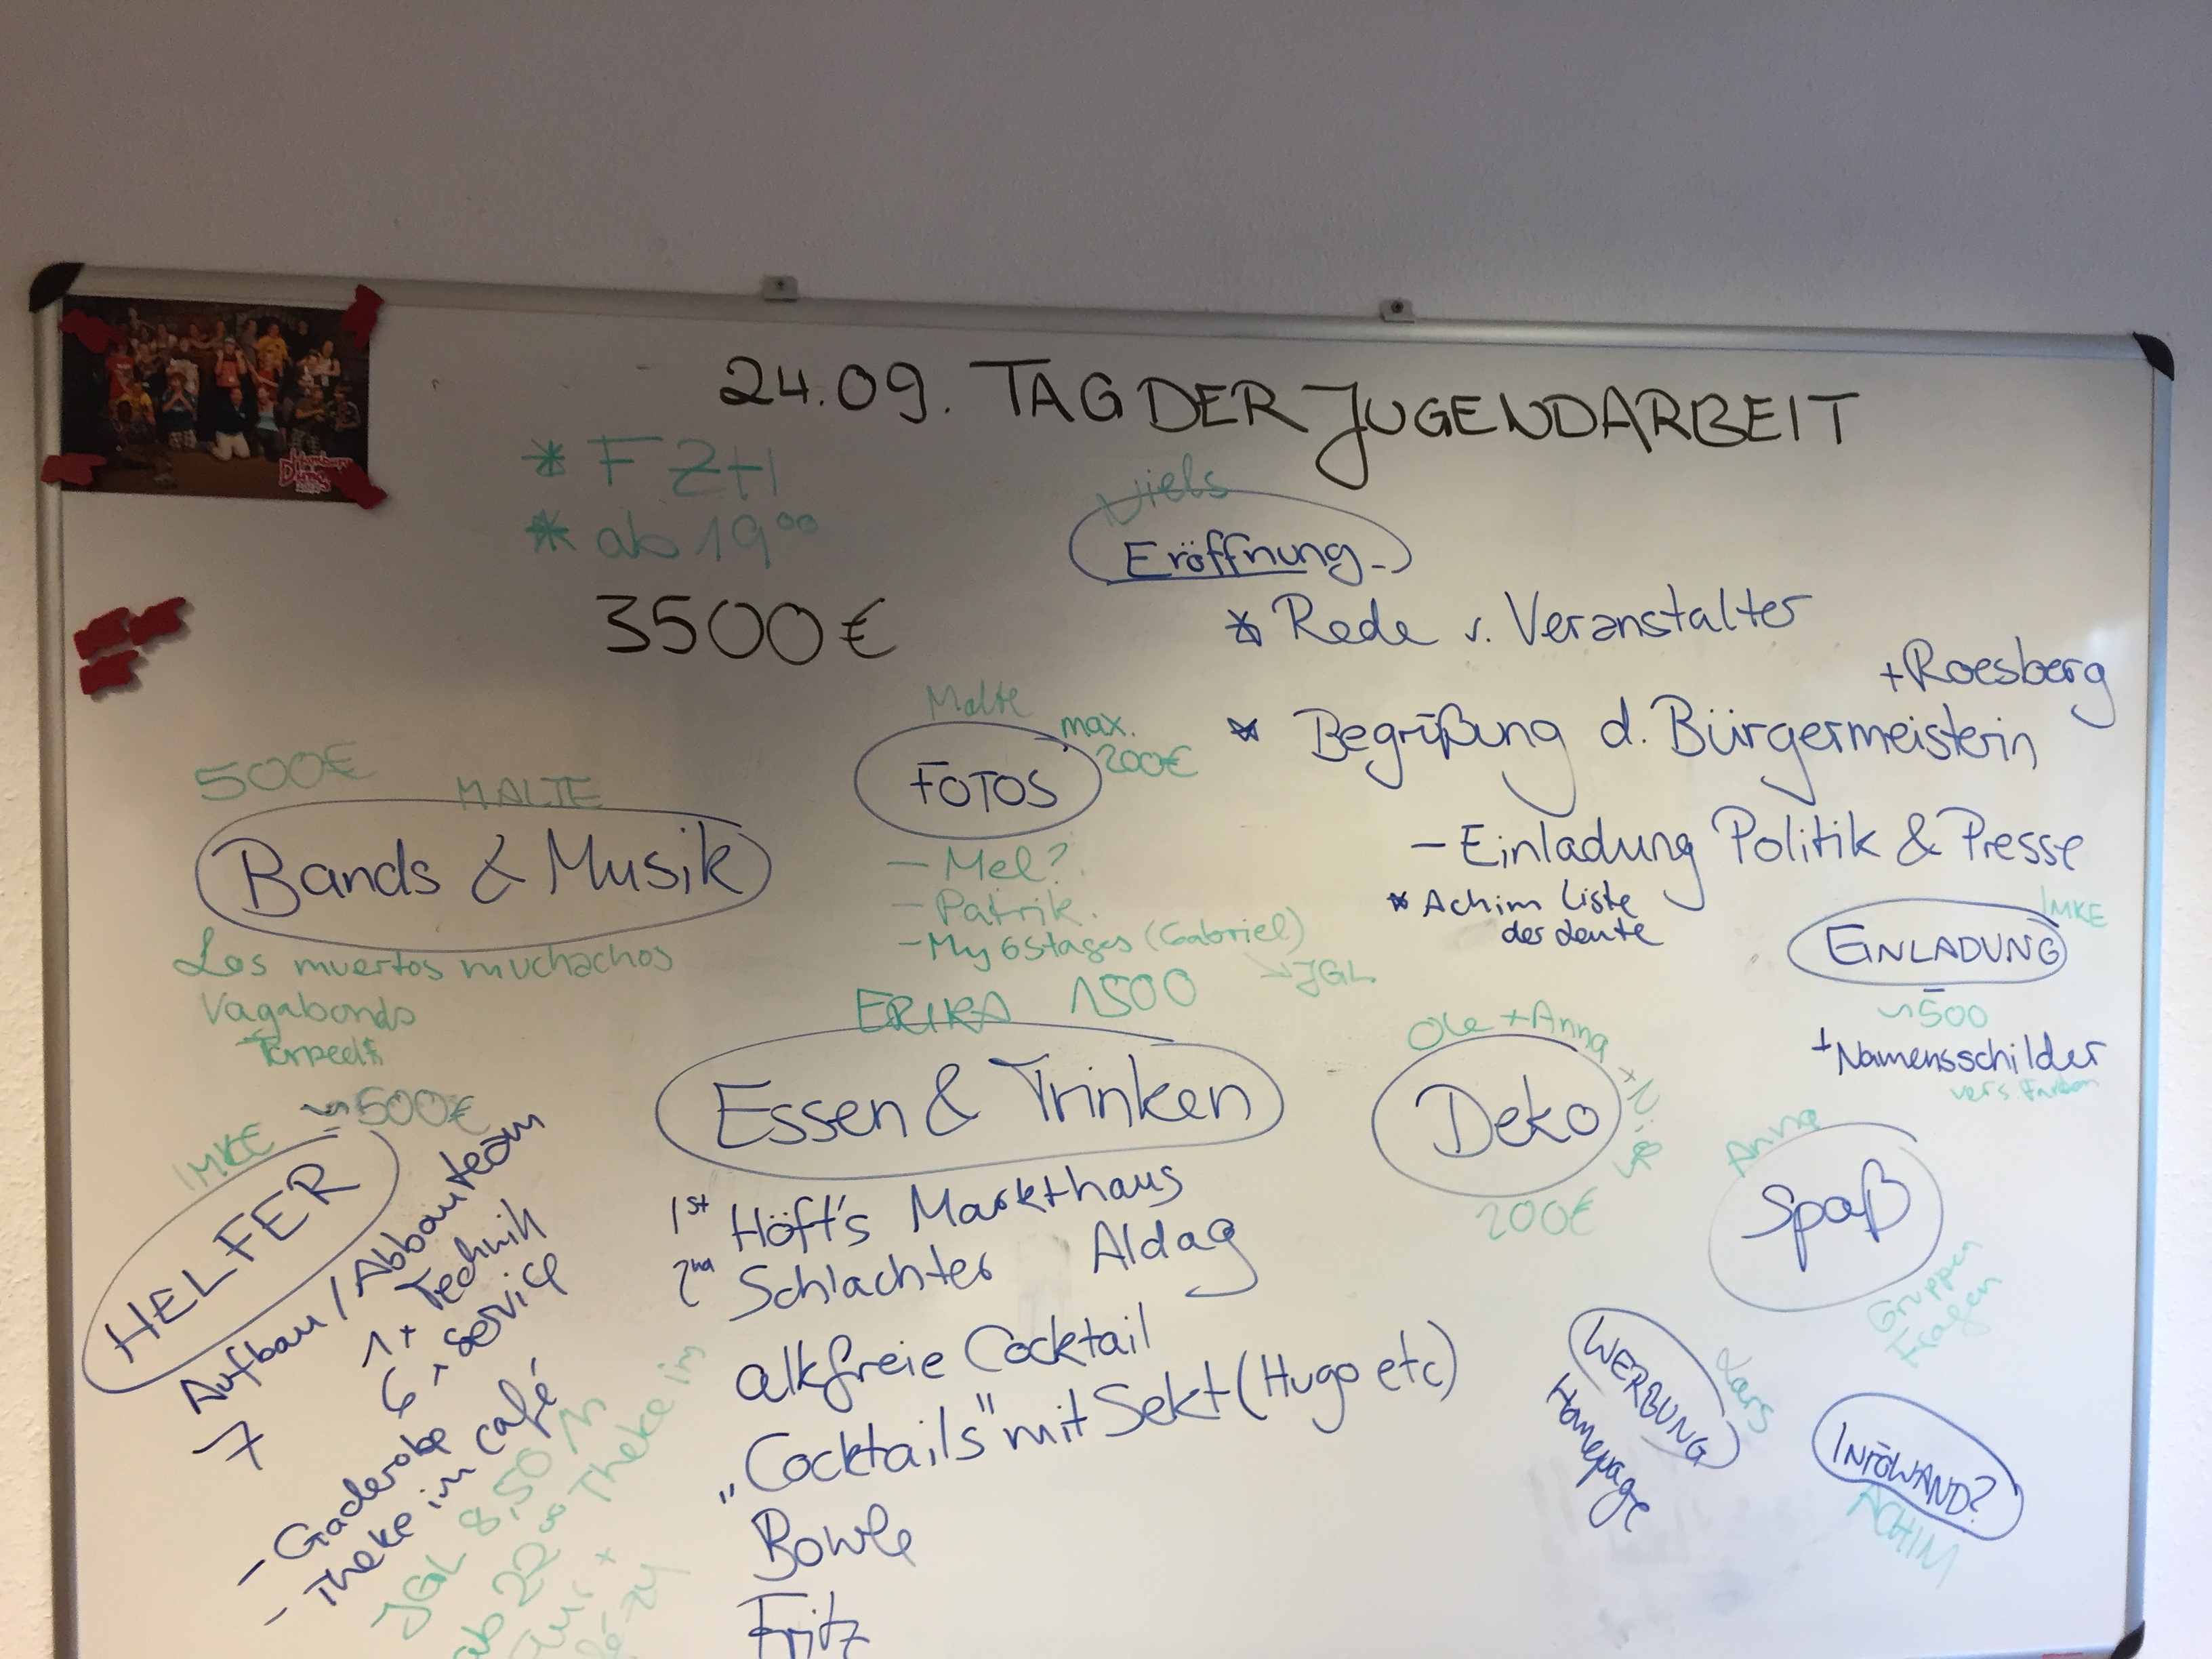 24.09. TAG DER JUGENDARBEIT
* FZH
* ab 19⁰⁰
3500€
Niels
Eröffnung
* Rede v. Veranstalter
+Roesberg
* Begrüßung d. Bürgermeisterin
- Einladung Politik & Presse
* Achim Liste
der Leute
Malte
max.
200€
FOTOS
- Mel?
- Patrik.
- My6Stages (Gabriel)
→ JGL
500€
MALTE
Bands & Musik
Los muertos muchachos
Vagabonds
IMKE
EINLADUNG
~500
+ Namensschilder
vers. Farben
ERIKA 1500
Essen & Trinken
1st Höft's Markthaus
2nd Schlachter Aldag
alkfreie Cocktail
„Cocktails" mit Sekt (Hugo etc)
Bowle
Fritz
Ole + Anna
Deko
200€
Anna
Spaß
Gruppen
fragen
IMKE
~500€
HELFER
Aufbau/Abbauteam
7
1+ Technik
6 + service
- Gaderobe
- Theke im café
JGL 8,50
ab 22⁰⁰ Theke im
WERBUNG
Lars
Homepage
INFOWAND?
ACHIM